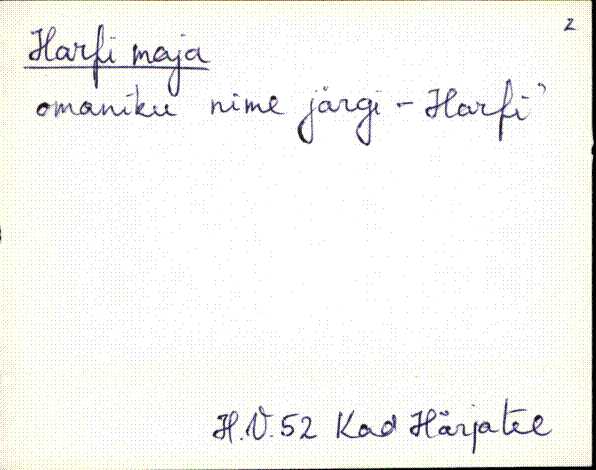 2
Harfi maja
omaniku nime järgi - Harfi"
H.V. 52 Kad Härjatel